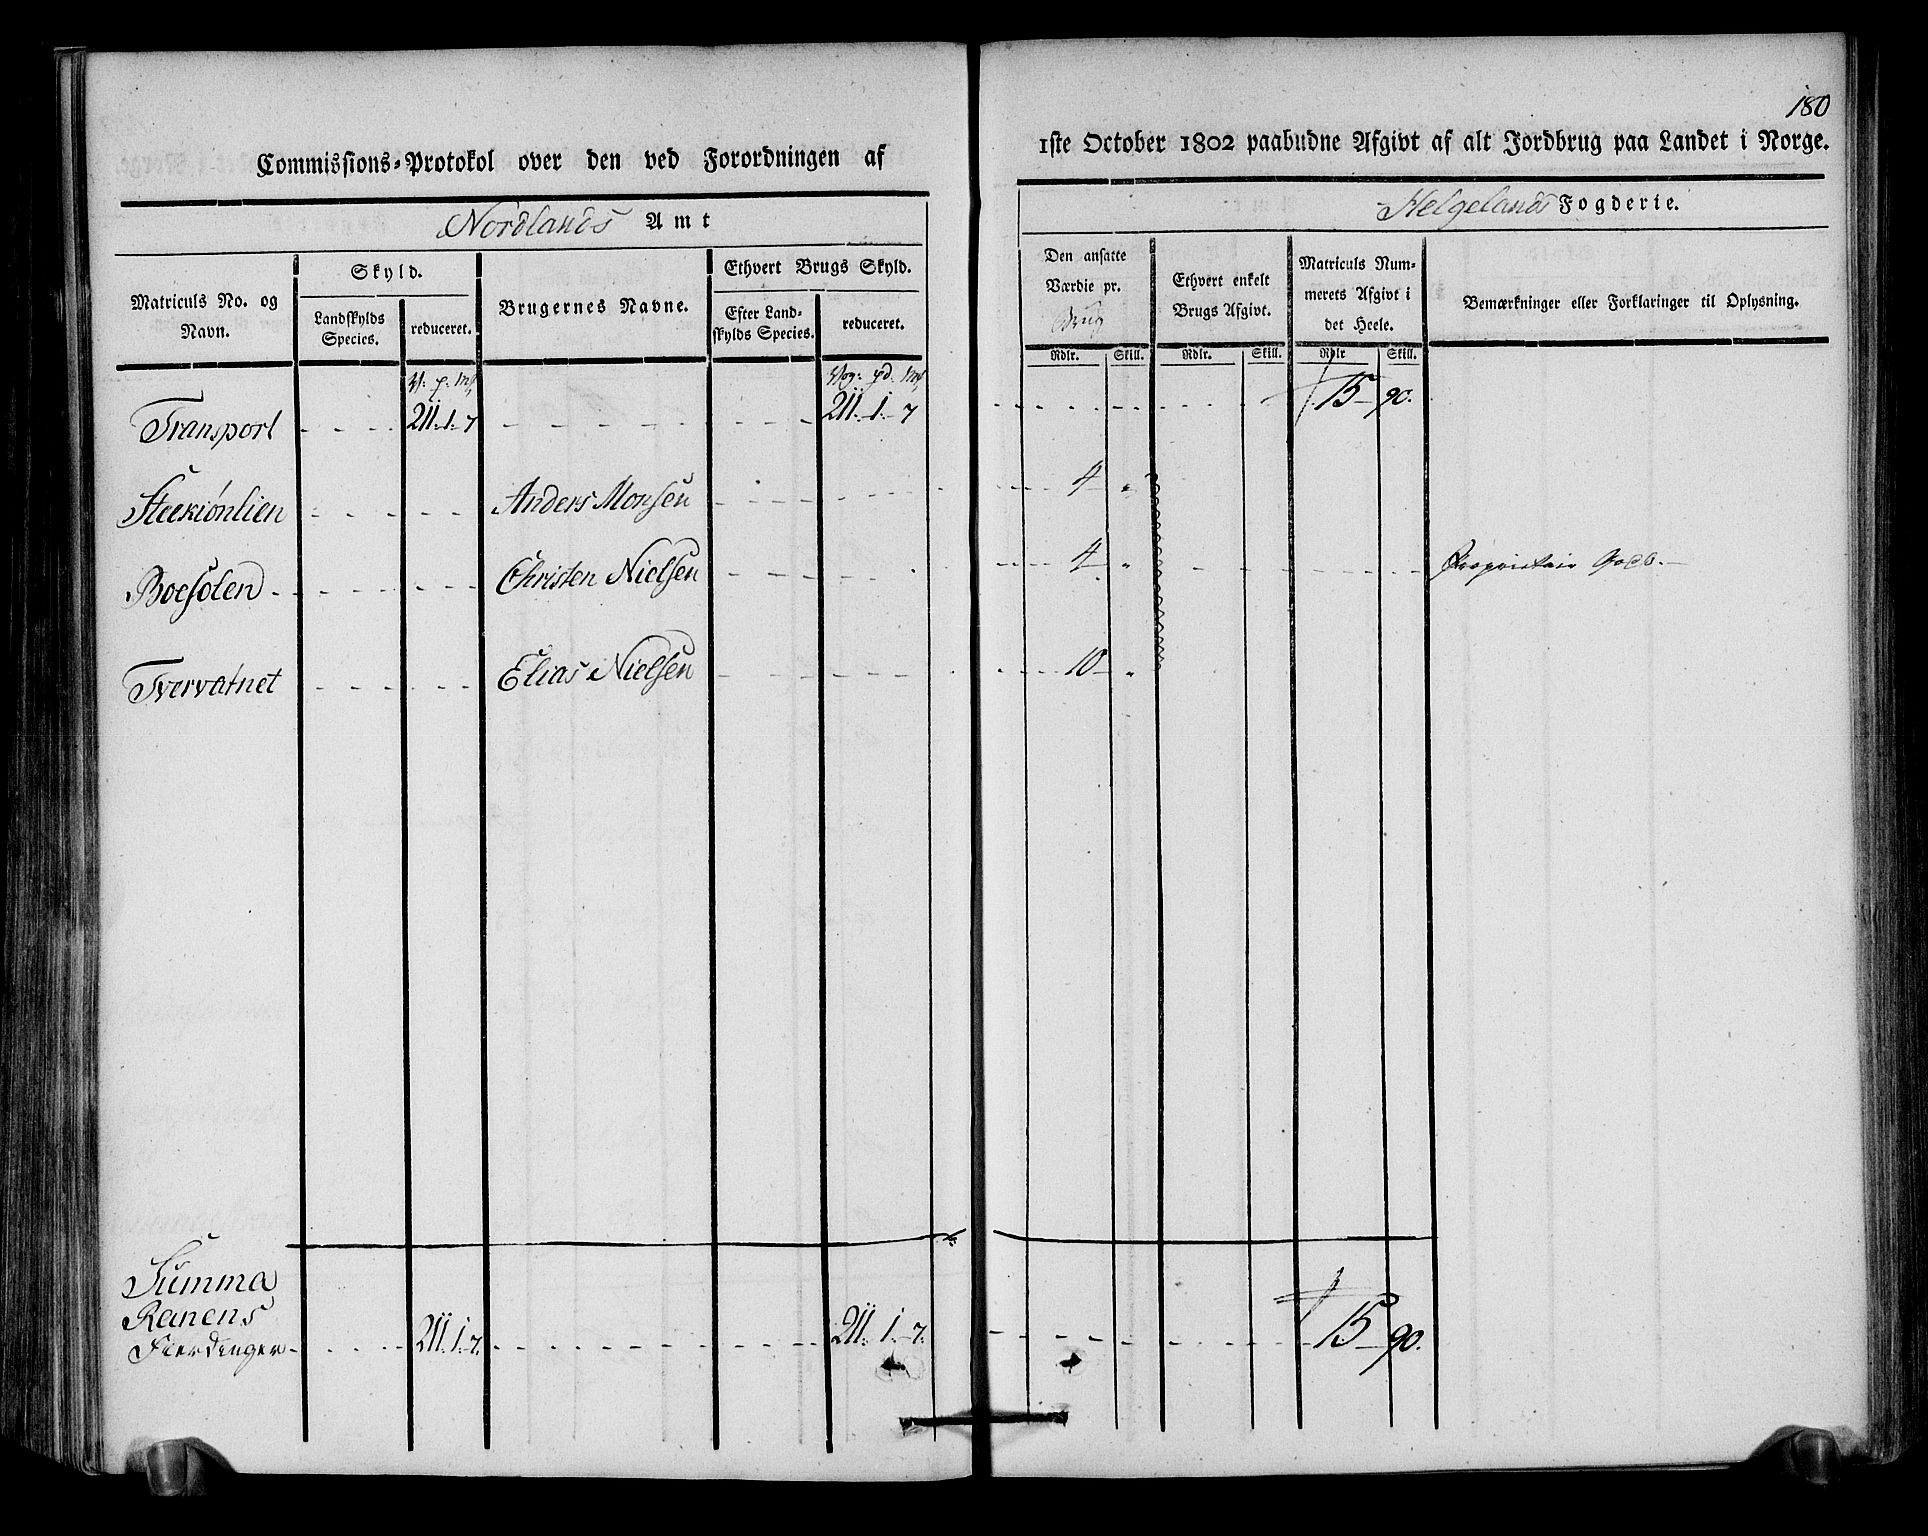 180
Commissions-Protokol over den ved Forordningen af
1ste October 1802 paabudne Afgivt af alt Jordbrug paa Landet i Norge.
Nordlands Amt
Helgelands Fogderie.
Matriculs No. og Navn.
Skyld.
Landskylds Species.
reduceret.
Brugernes Navne.
Ethvert Brugs Skyld.
Efter Landskylds Species.
reduceret.
Den ansatte Værdie pr. Brug
Ethvert enkelt Brugs Afgivt.
Matriculs Nummerets Afgivt i det Heele.
Bemærkninger eller Forklaringer til Oplysning.
Rdlr. Skill. Rdlr. Skill. Rdlr Skill.
V: p: m Vog: pd. m
Transport 211. 1. 7 211. 1. 7 15 90.
Steekiønlien Anders Monsen 4 "
Boesolen Christen Nielsen 4 " Proprietair Gods.
Tvervatnet Elias Nielsen 10 "
Summa
Ranens
Fierdinger 211. 1. 7. 211. 1. 7. 15 90.